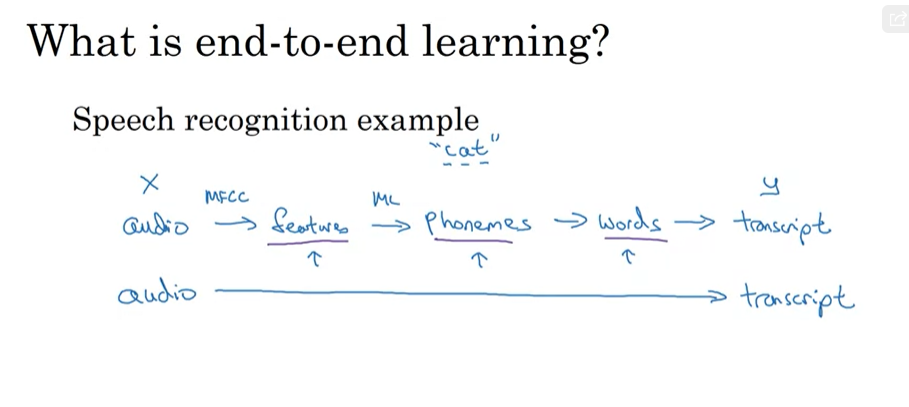 What is end-to-end learning?
Speech recognition example
"cat"
X y
MFCC ML
audio → features → phonemes → words → transcript
↑ ↑ ↑
audio → transcript